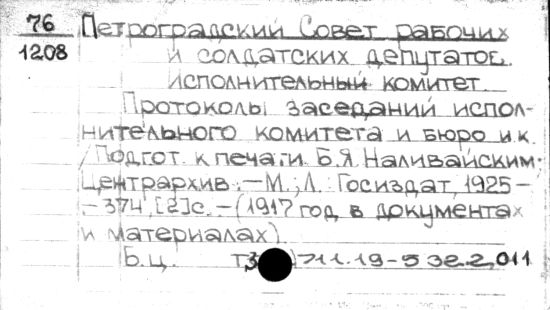 76
1208
Петроградский Совет рабочих
и солдатских депутатов.
исполнительный комитет.
Протоколы заседаний испол-
нительного комитета и бюро и.к.
/Подгот. к печати Б.Я. Наливайским;
Центрархив.—М.;Л.: Госиздат, 1925—
—374,[2]с.—(1917 год в документах
и материалах)
Б.ц.
711.19-5 32.2,011